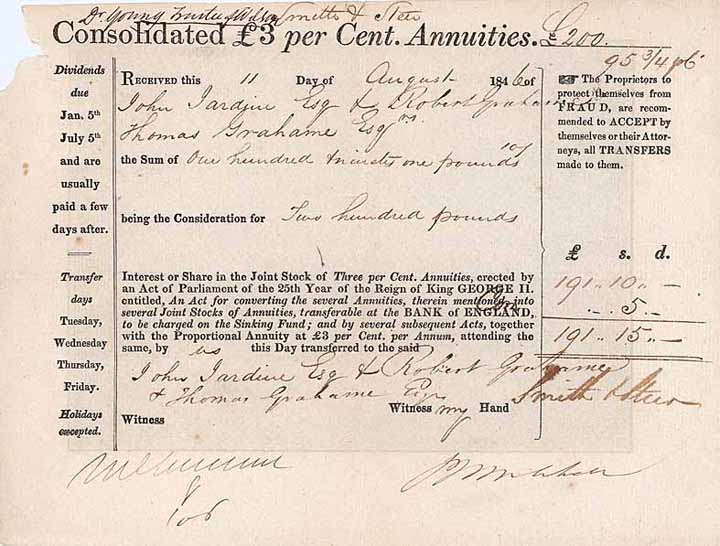 Dr. Young Trustee Wilson Smith & Steer
Consolidated £3 per Cent. Annuities. £200.
95 3/4
Dividends
due
Jan. 5th
July 5th
and are
usually
paid a few
days after.
Transfer
days
Tuesday,
Wednesday
Thursday,
Friday.
Holidays
excepted.
RECEIVED this 11 Day of August 1846 of
John Jardine Esq & Robert Grahame
Thomas Grahame Esqrs.
the Sum of One hundred & ninety one pounds 10/
being the Consideration for Two hundred pounds
Interest or Share in the Joint Stock of Three per Cent. Annuities, erected by
an Act of Parliament of the 25th Year of the Reign of King GEORGE II.
entitled, An Act for converting the several Annuities, therein mentioned, into
several Joint Stocks of Annuities, transferable at the BANK of ENGLAND,
to be charged on the Sinking Fund; and by several subsequent Acts, together
with the Proportional Annuity at £3 per Cent. per Annum, attending the
same, by us this Day transferred to the said
John Jardine Esq & Robert Grahame
& Thomas Grahame Esqrs
Witness my Hand Smith & Steer
Witness
☞ The Proprietors to
protect themselves from
FRAUD, are recom-
mended to ACCEPT by
themselves or their Attor-
neys, all TRANSFERS
made to them.
£ s. d.
191 .. 10 .. —
. .. 5 .. —
191 .. 15 .. —